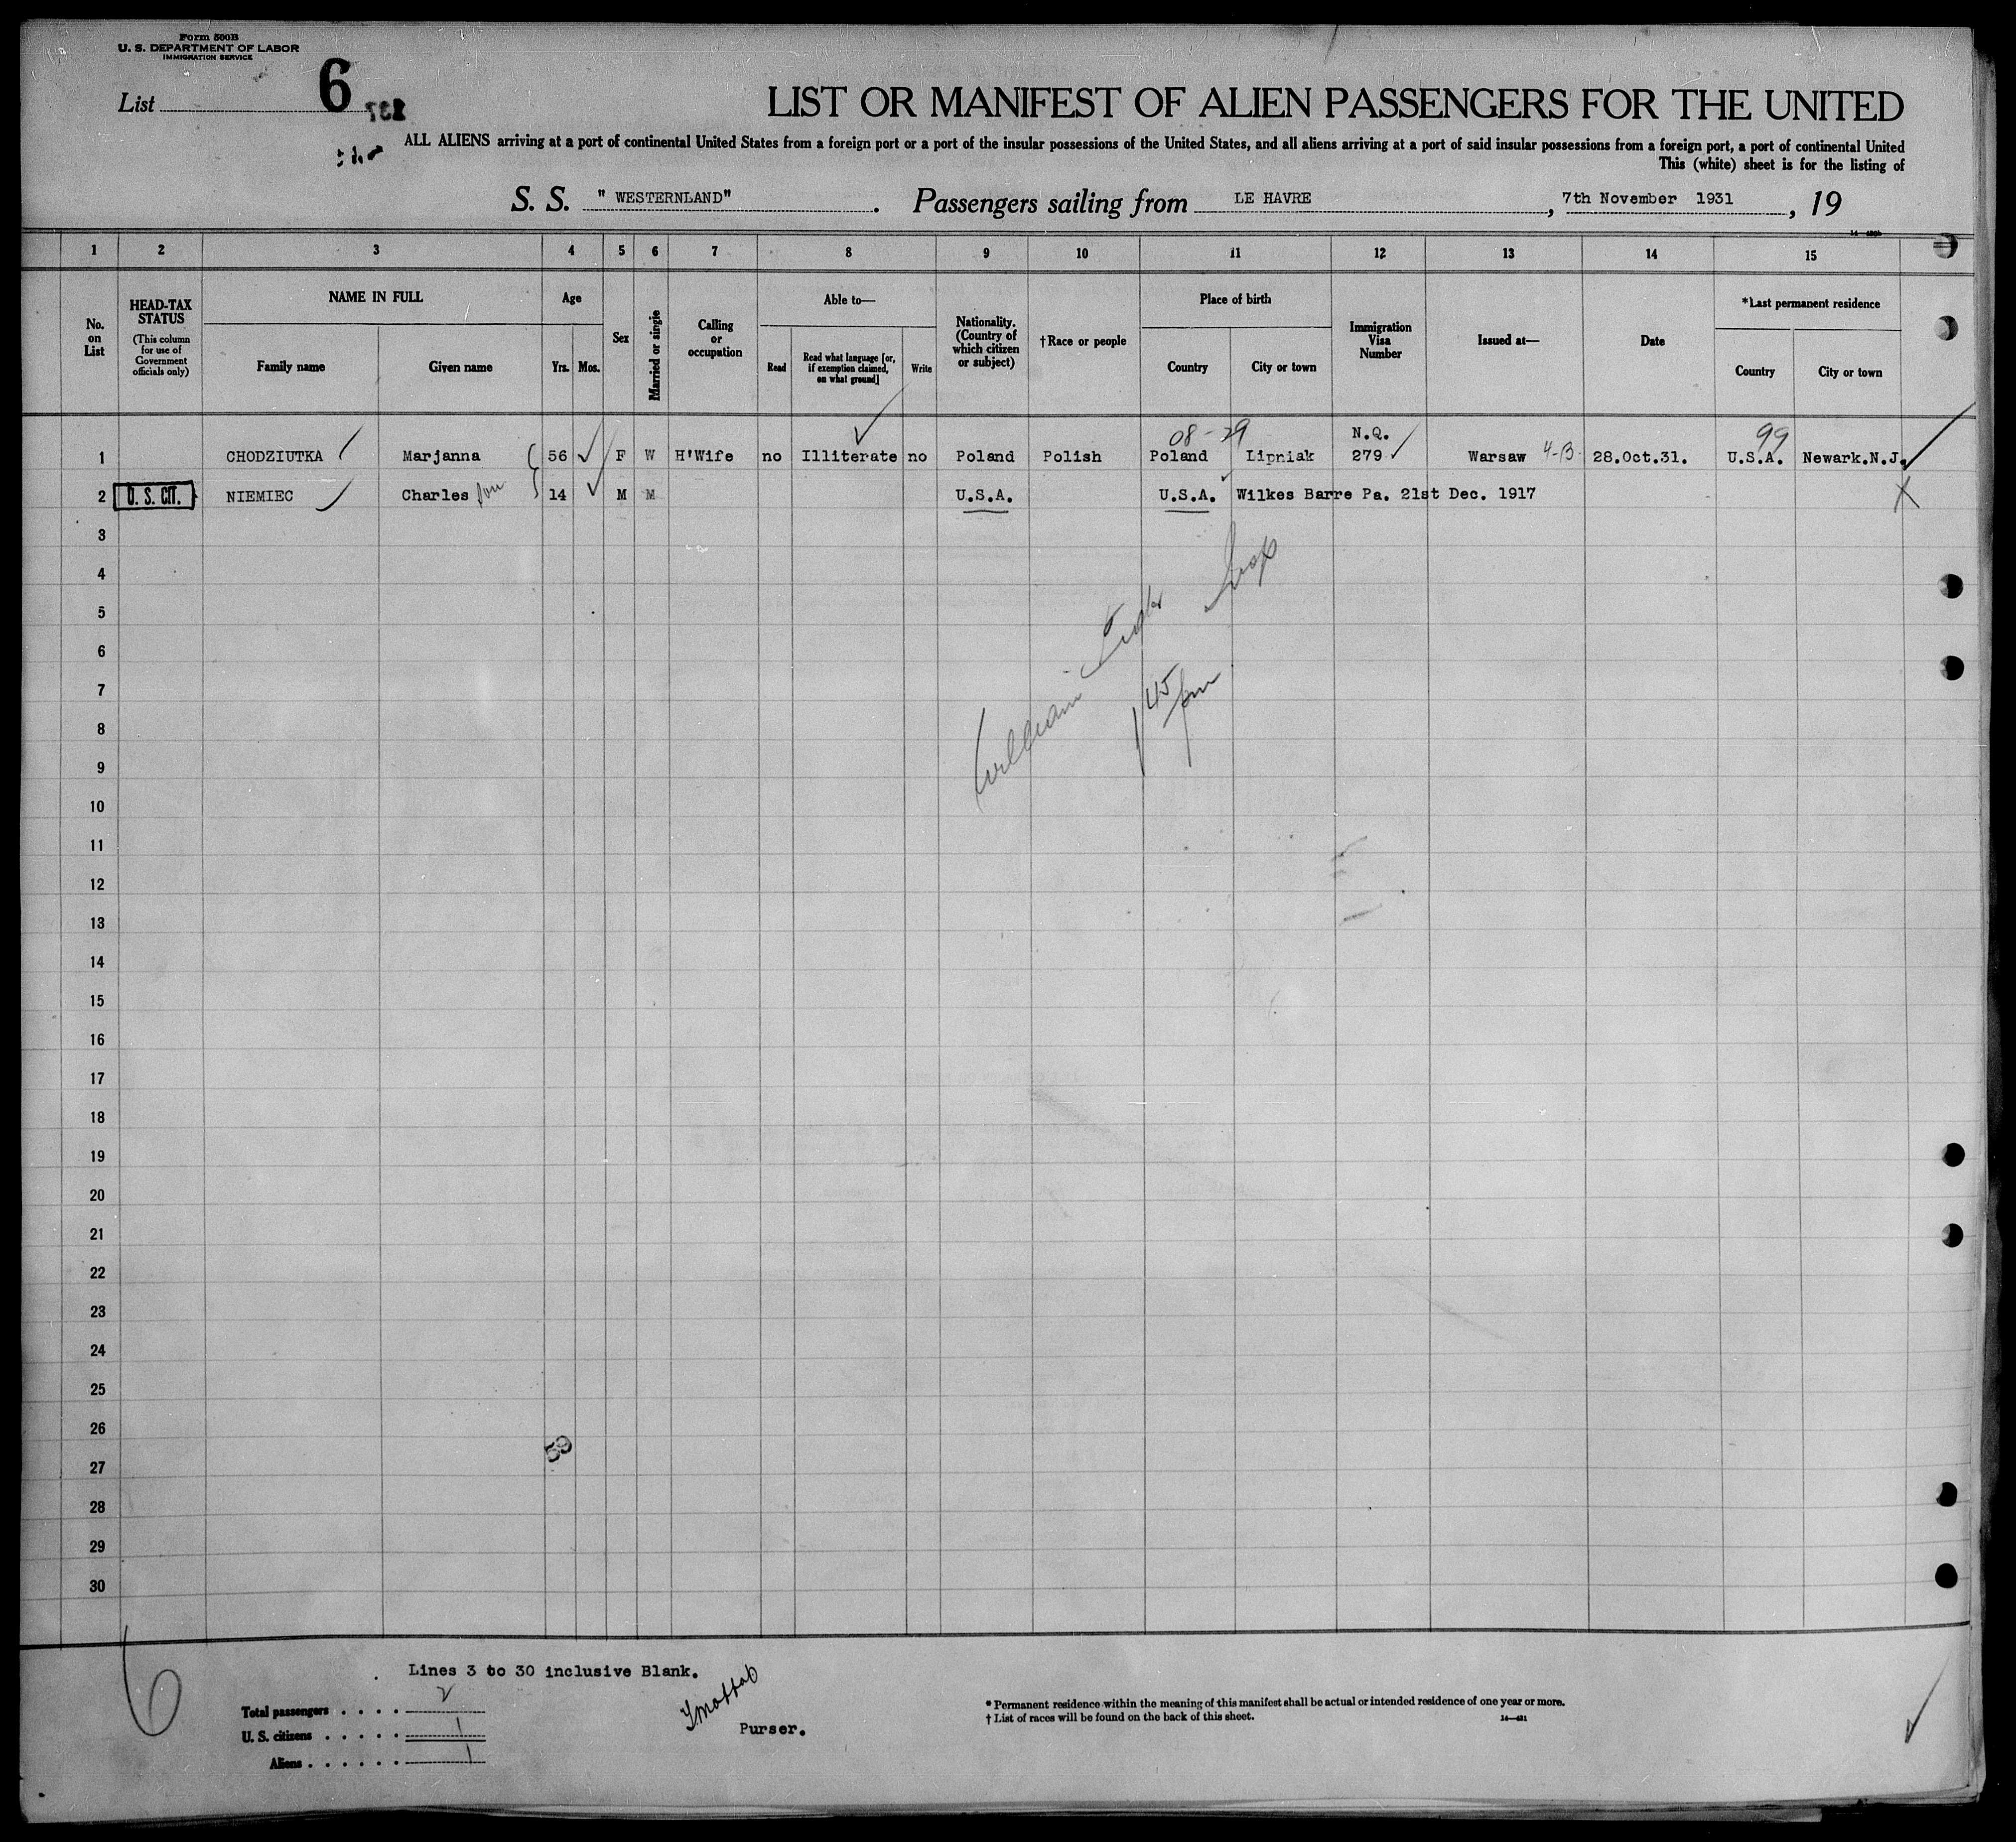 Form 500B
U. S. DEPARTMENT OF LABOR
IMMIGRATION SERVICE
List 6
LIST OR MANIFEST OF ALIEN PASSENGERS FOR THE UNITED
ALL ALIENS arriving at a port of continental United States from a foreign port or a port of the insular possessions of the United States, and all aliens arriving at a port of said insular possessions from a foreign port, a port of continental United
This (white) sheet is for the listing of
S. S. " WESTERNLAND" . Passengers sailing from LE HAVRE , 7th November 1931 , 19
1 2 3 4 5 6 7 8 9 10 11 12 13 14 15
No. on List
HEAD-TAX STATUS
(This column for use of Government officials only)
NAME IN FULL
Family name Given name
Age
Yrs. Mos.
Sex
Married or single
Calling or occupation
Able to—
Read
Read what language [or, if exemption claimed, on what ground]
Write
Nationality. (Country of which citizen or subject)
†Race or people
Place of birth
Country City or town
Immigration Visa Number
Issued at—
Date
*Last permanent residence
Country City or town
08-29 N.Q. 99
1 CHODZIUTKA Marjanna 56 F W H'Wife no Illiterate no Poland Polish Poland Lipniak 279 Warsaw 4-B 28.Oct.31. U.S.A. Newark.N.J.
2 U. S. CIT. NIEMIEC Charles son 14 M M U.S.A. U.S.A. Wilkes Barre Pa. 21st Dec. 1917
3
4
5
6
7
8
9
10
11
12
13
14
15
16
17
18
19
20
21
22
23
24
25
26
27
28
29
30
William
1 45 pm
59
6
Lines 3 to 30 inclusive Blank.
Total passengers . . . . 2
U. S. citizens . . . . . 1
Aliens . . . . . . 1
Purser.
* Permanent residence within the meaning of this manifest shall be actual or intended residence of one year or more.
† List of races will be found on the back of this sheet.